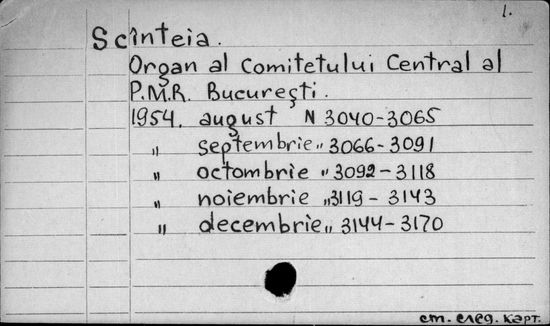 1.
Scînteia.
Organ al Comitetului Central al
P.M.R. Bucureşti.
1954. august N 3040-3065
" septembrie " 3066-3091
" octombrie " 3092-3118
" noiembrie " 3119-3143
" decembrie " 3144-3170
см. след. карт.